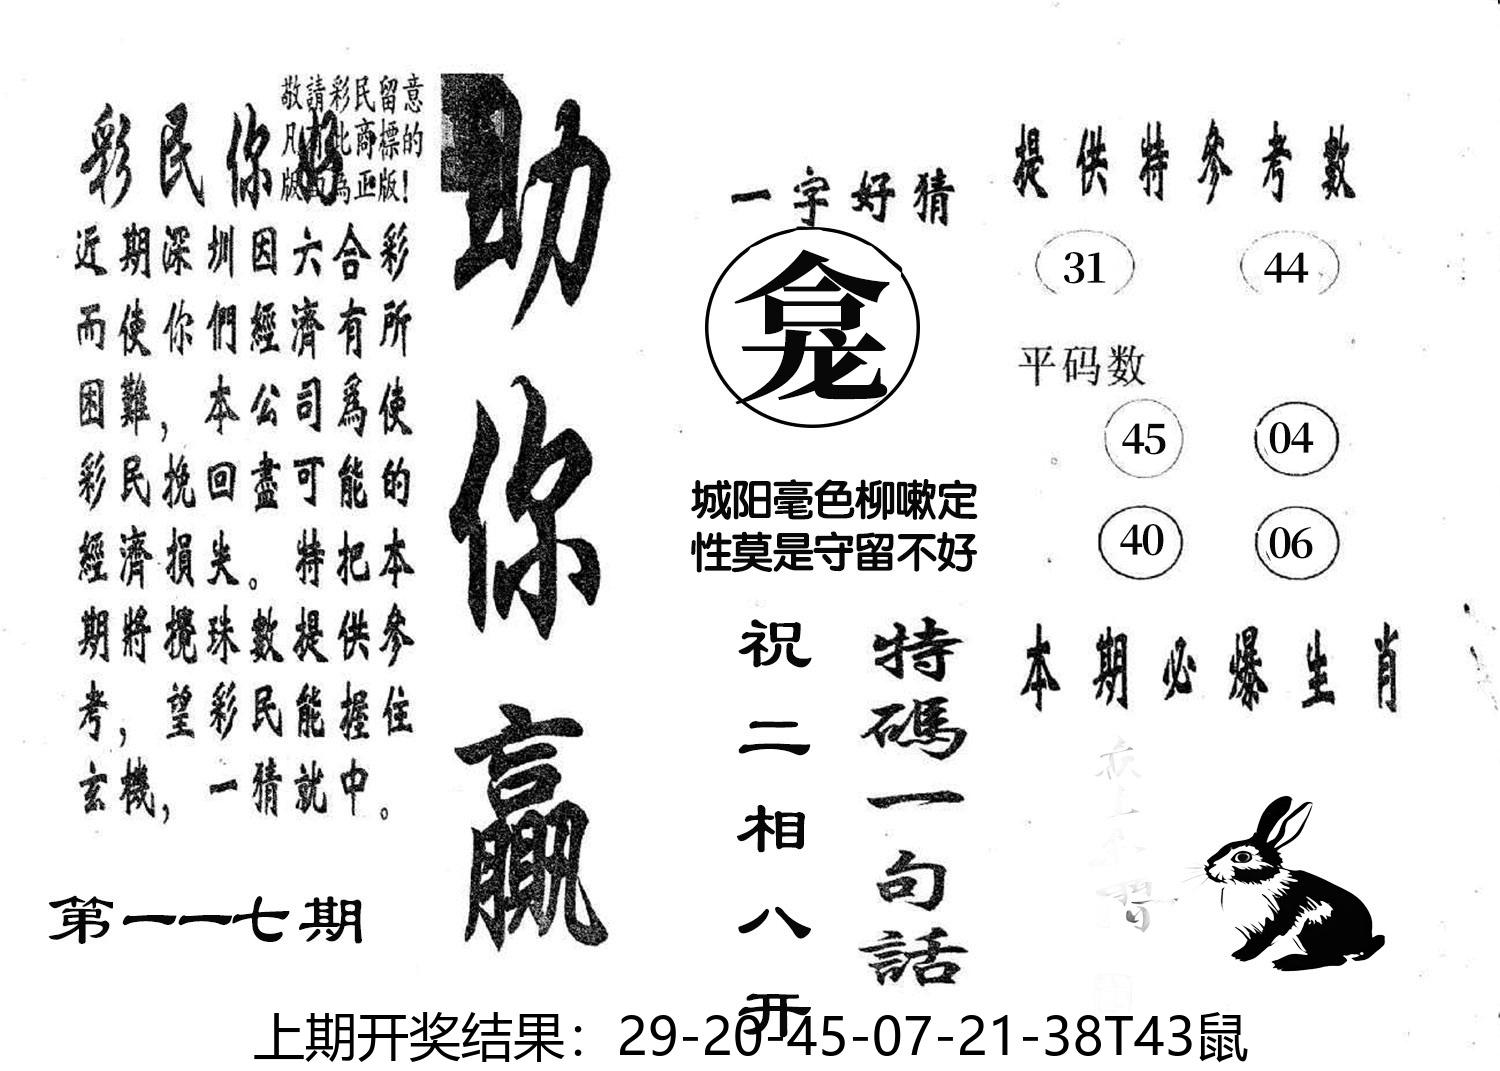 敬請彩民留意
凡有此商標的
版面為正版!
彩民你好
近期深圳因六合彩
而使你們經濟有所
困難，本公司爲使
彩民挽回盡可能的
經濟損失。特把本
期將攪珠數提供參
考，望彩民能握住
玄機，一猜就中。
第一一七期
助你贏
一字好猜
龛
城阳毫色柳嗽定
性莫是守留不好
特碼一句話
祝二相八开
提供特参考數
31 44
平码数
45 04
40 06
本期必爆生肖
上期开奖结果：29-20-45-07-21-38T43鼠